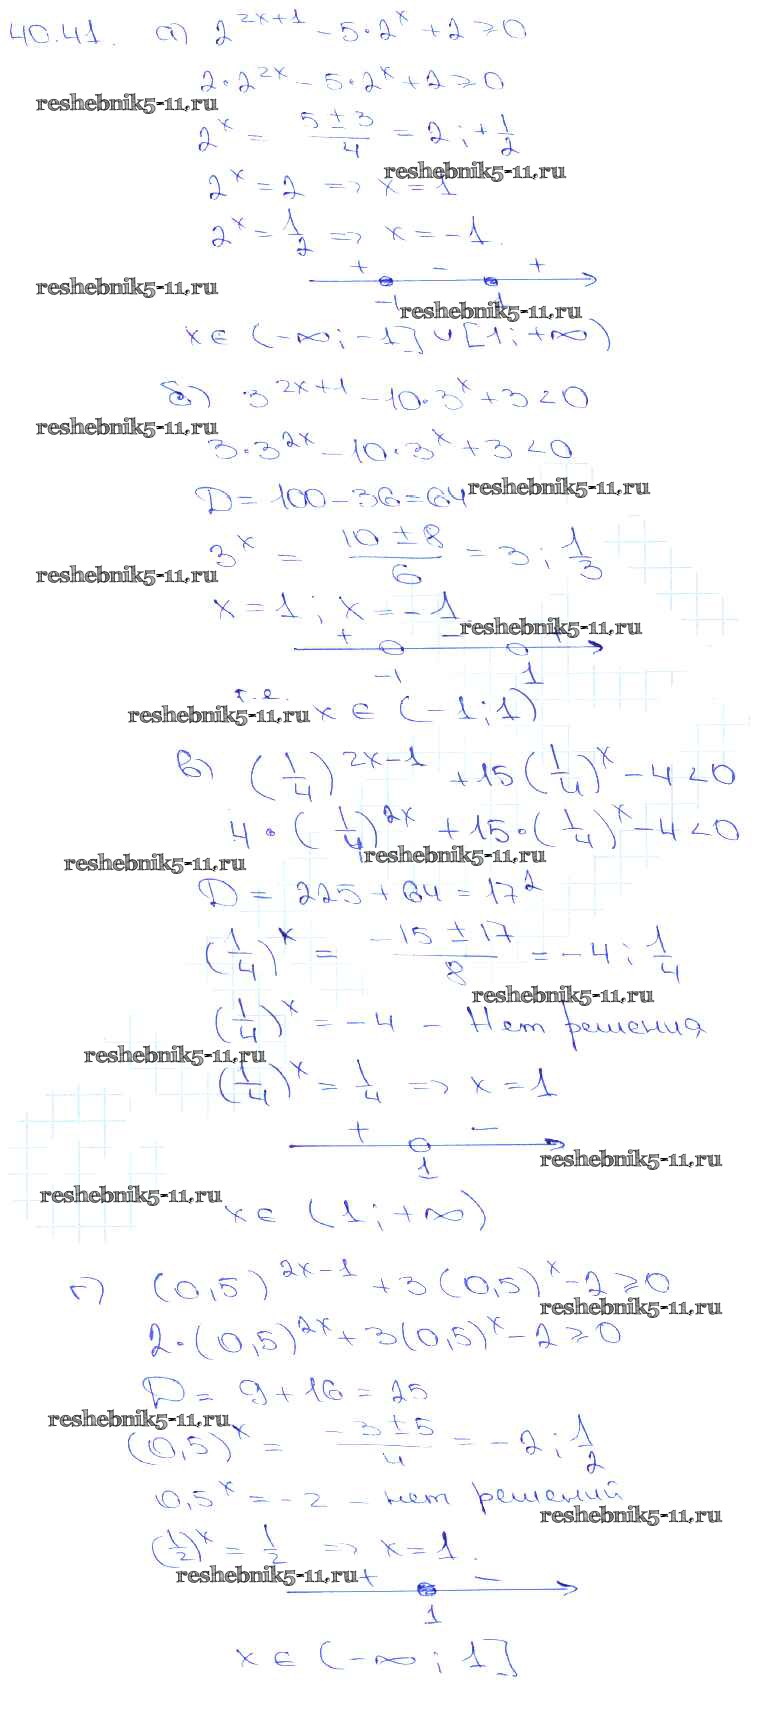 40.41. а) 2^(2x+1) - 5·2^x + 2 ≥ 0
2·2^(2x) - 5·2^x + 2 ≥ 0
reshebnik5-11.ru
2^x = (5 ± 3)/4 = 2; + 1/2
reshebnik5-11.ru
2^x = 2 => x = 1
2^x = 1/2 => x = -1.
+ - +
reshebnik5-11.ru
-1 1
reshebnik5-11.ru
x ∈ (-∞; -1] ∪ [1; +∞)
б) 3^(2x+1) - 10·3^x + 3 < 0
reshebnik5-11.ru
3·3^(2x) - 10·3^x + 3 < 0
D = 100 - 36 = 64
reshebnik5-11.ru
3^x = (10 ± 8)/6 = 3; 1/3
reshebnik5-11.ru
x = 1; x = -1
reshebnik5-11.ru
+ - +
-1 1
т.е. x ∈ (-1; 1)
reshebnik5-11.ru
в) (1/4)^(2x-1) + 15(1/4)^x - 4 < 0
4·(1/4)^(2x) + 15·(1/4)^x - 4 < 0
reshebnik5-11.ru
reshebnik5-11.ru
D = 225 + 64 = 17^2
(1/4)^x = (-15 ± 17)/8 = -4; 1/4
reshebnik5-11.ru
(1/4)^x = -4 - Нет решения
reshebnik5-11.ru
(1/4)^x = 1/4 => x = 1
+ -
1
reshebnik5-11.ru
reshebnik5-11.ru
x ∈ (1; +∞)
г) (0,5)^(2x-1) + 3(0,5)^x - 2 ≥ 0
reshebnik5-11.ru
2·(0,5)^(2x) + 3(0,5)^x - 2 ≥ 0
D = 9 + 16 = 25
reshebnik5-11.ru
(0,5)^x = (-3 ± 5)/4 = -2; 1/2
0,5^x = -2 - нет решений
reshebnik5-11.ru
(1/2)^x = 1/2 => x = 1.
reshebnik5-11.ru
+ -
1
x ∈ (-∞; 1]